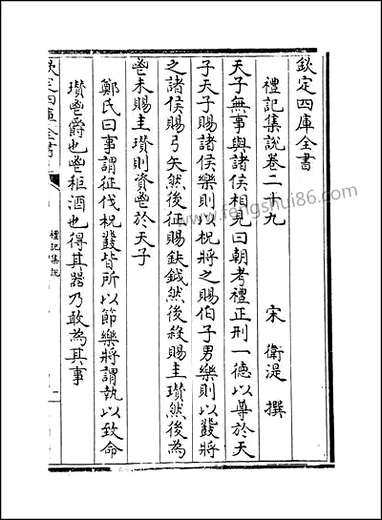 欽定四庫全書
禮記集說卷二十九
宋 衛湜 撰
天子無事與諸侯相見曰朝考禮正刑一德以尊於天
子天子賜諸侯樂則以柷將之賜伯子男樂則以鼗將
之諸侯賜弓矢然後征賜鈇鉞然後殺賜圭瓚然後為
鬯未賜圭瓚則資鬯於天子
鄭氏曰事謂征伐柷鼗皆所以節樂將謂執以致命
瓚鬯爵也鬯秬酒也得其器乃敢為其事
欽定四庫全書
禮記集說
一
www.fengshui86.com